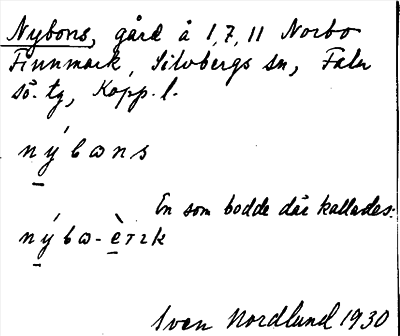 Nybons, gård å 1,7,11 Norbo
Finnmark, Silvbergs sn, Falu
sö. tg, Kopp. l.
nýbɷns
En som bodde där kallades:
nýbɷ-è
Sven Nordlund 1930